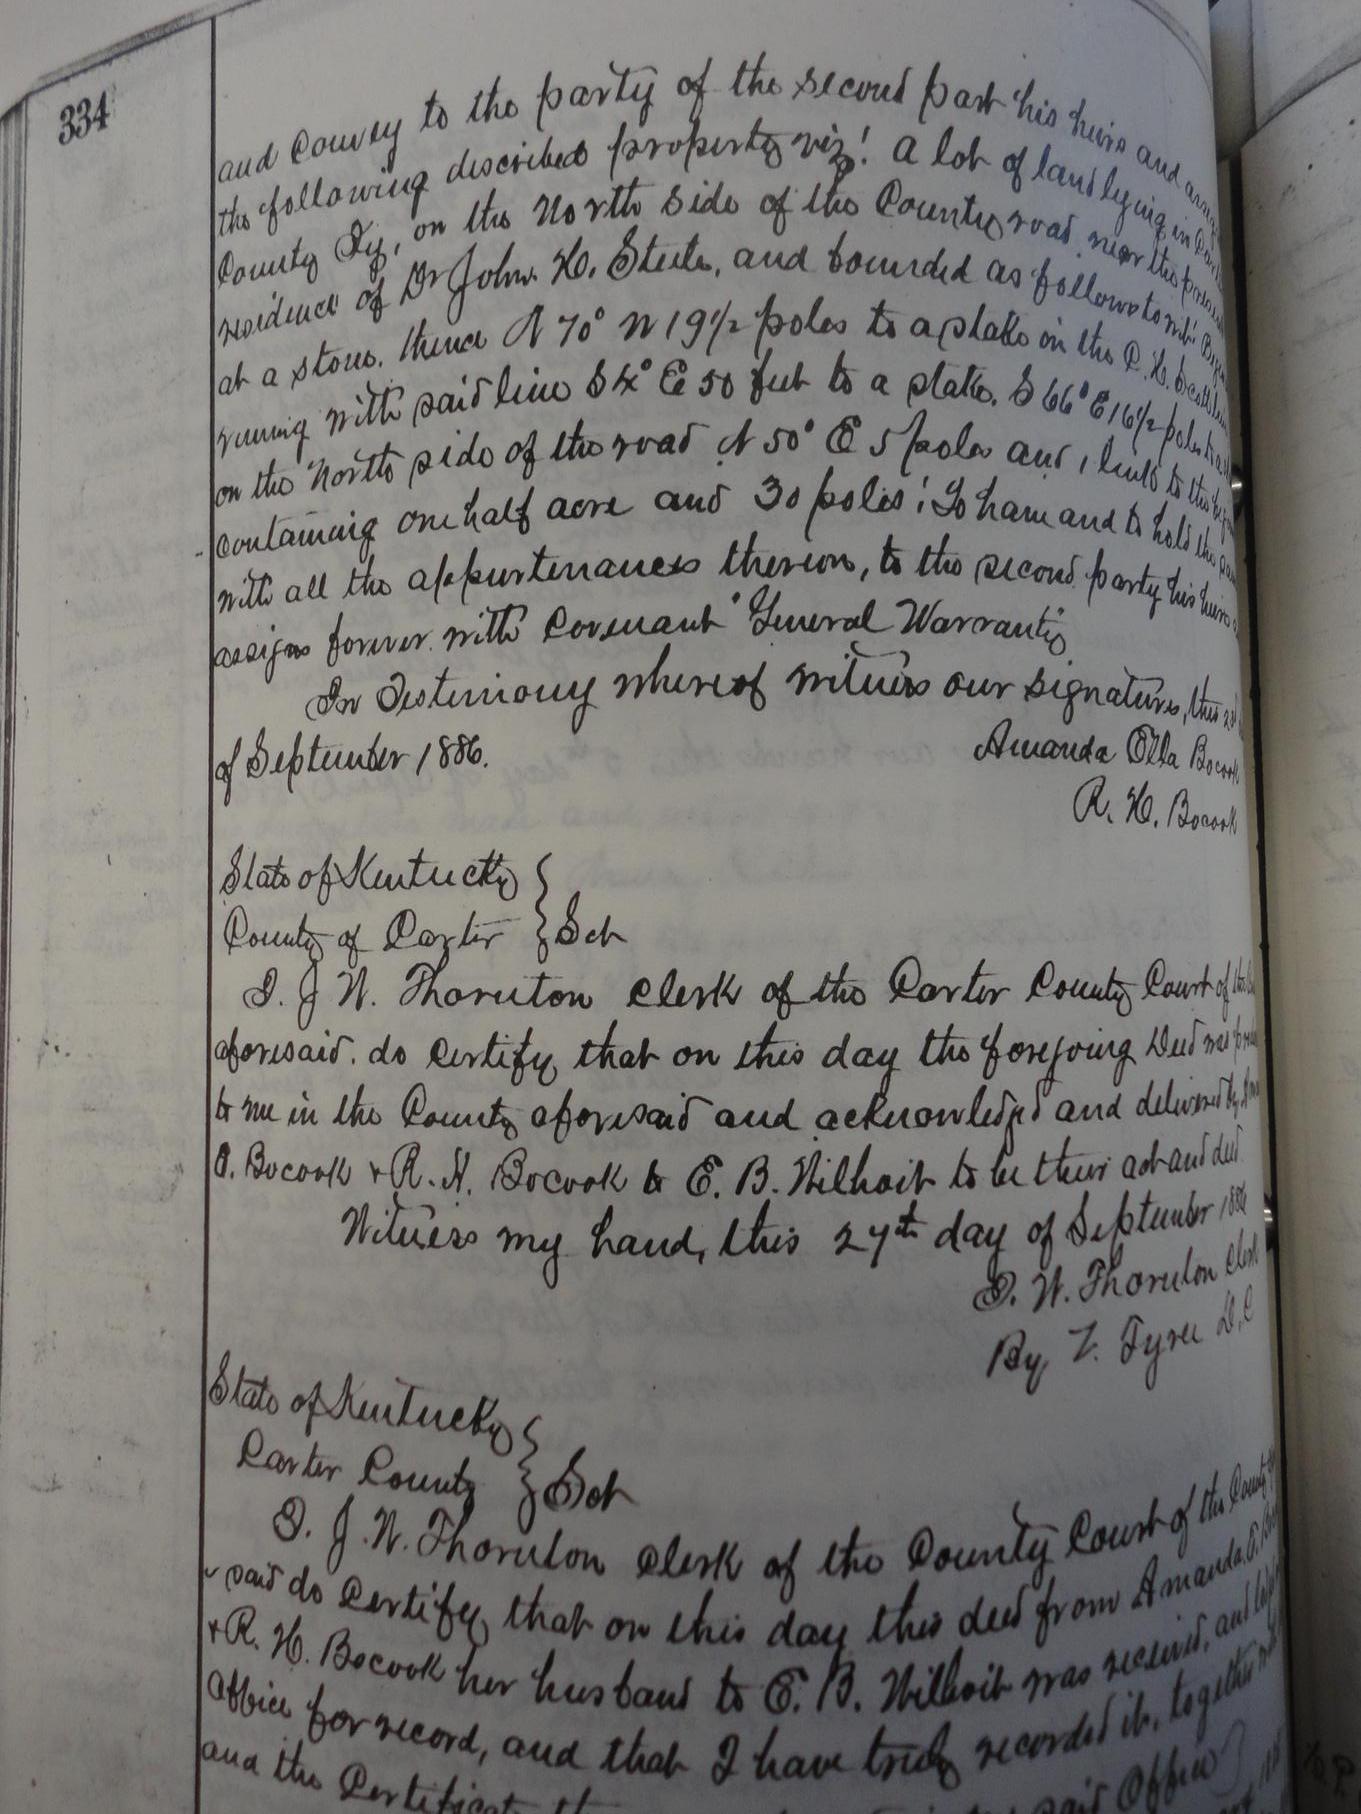 334
and Convey to the party of the second part his heirs and
the following described property viz! A lot of land lying in
County Ky, on the North side of the County road near the
residence of Dr John H. Steele, and bounded as follows to wit:
at a stone. thence N 70° W 19 1/2 poles to a stake in the
running with said line S 4° E 50 feet to a stake. S 66° E 16 1/2 poles
on the North side of the road N 50° E 5 poles and, links to the
containing one half acre and 30 poles; To have and to hold the
with all the appurtenances thereon, to the second party his heirs
assigns forever with Covenant "General Warranty
In Testimony whereof witness our signatures, this
of September 1886.
Amanda Olla Bocook
R. H. Bocook
State of Kentucky
County of Carter } Sct
I. J W. Thornton Clerk of the Carter County Court of
aforesaid. do certify that on this day the foregoing Deed was
to me in the County aforesaid and acknowledged and delivered by
O. Bocook & R. H. Bocook to E. B. Wilhoit to be their act and deed
Witness my hand, this 27th day of September 1886
J. W. Thornton Clerk
By Z. Tyree D.C
State of Kentucky
Carter County } Sct
I. J. W. Thornton Clerk of the County Court of the County
said do Certify that on this day this deed from Amanda O.
& R. H. Bocook her husband to E. B. Wilhoit was received, and
office for record, and that I have truly recorded it, together
and the Certificate said Office